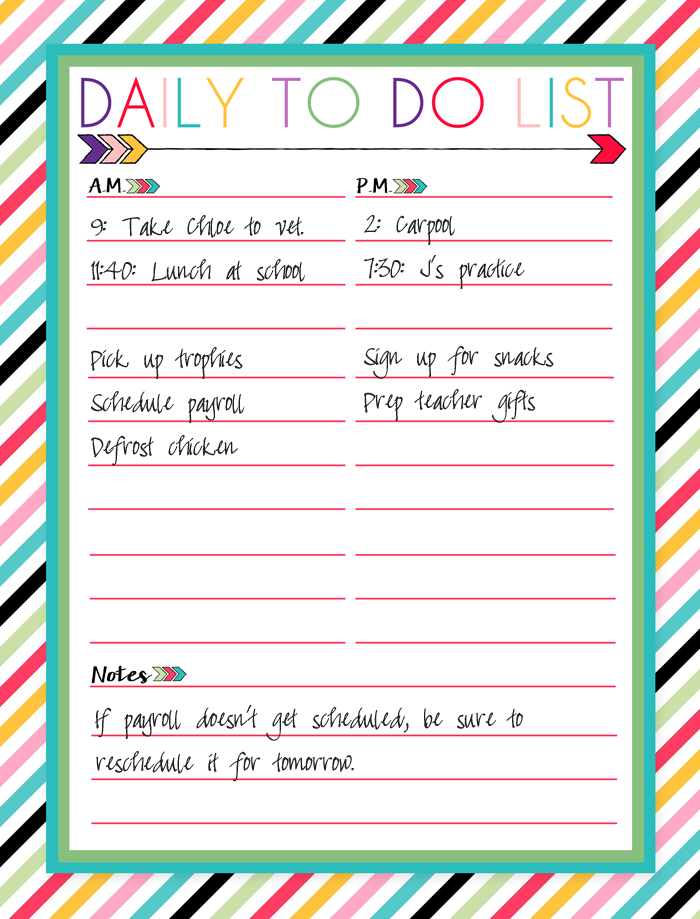 DAILY TO DO LIST
A.M.
9: Take Chloe to vet.
11:40: Lunch at school
Pick up trophies
Schedule payroll
Defrost chicken
P.M.
2: Carpool
7:30: J's practice
Sign up for snacks
Prep teacher gifts
Notes
If payroll doesn't get scheduled, be sure to
reschedule it for tomorrow.